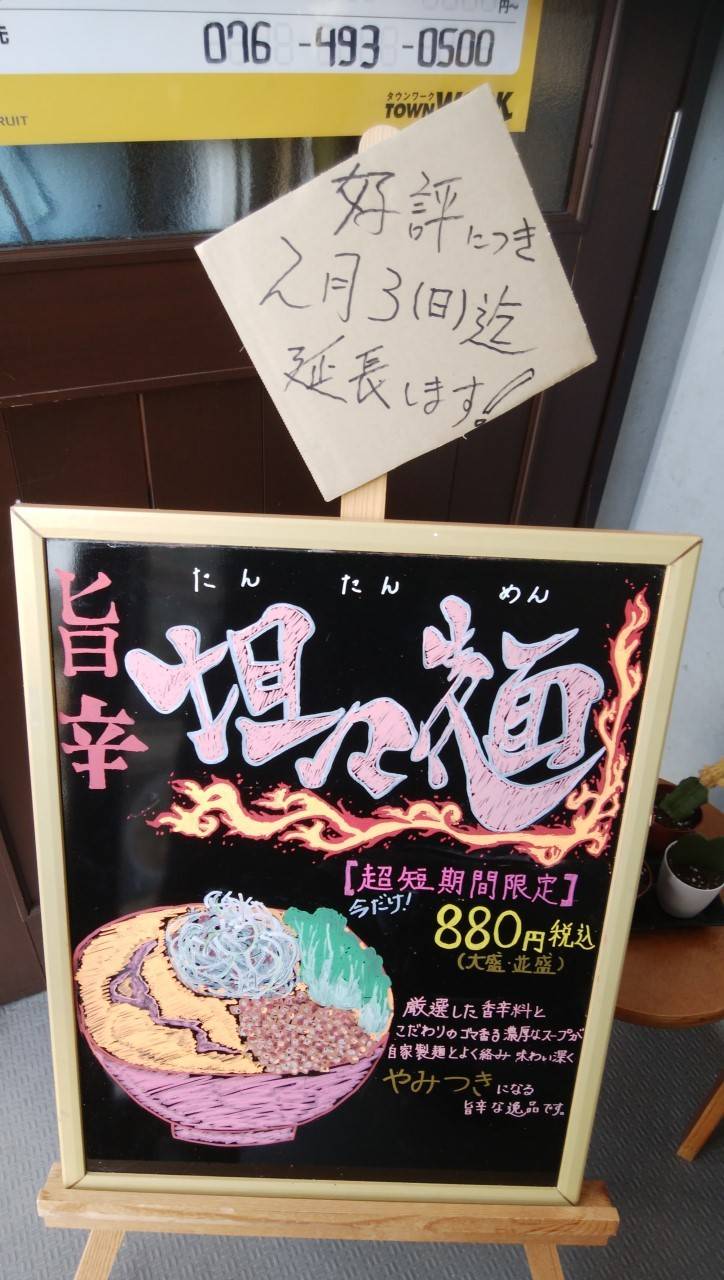 先
円~
076-493-0500
RUIT
タウンワーク
TOWNWORK
好評につき
2月3(日)迄
延長します!
旨辛
たんたんめん
担々麺
[超短期間限定]
今だけ!
880円税込
(大盛・並盛)
厳選した香辛料と
こだわりのゴマ香る濃厚なスープが
自家製麺とよく絡み味わい深く
やみつきになる
旨辛な逸品です。